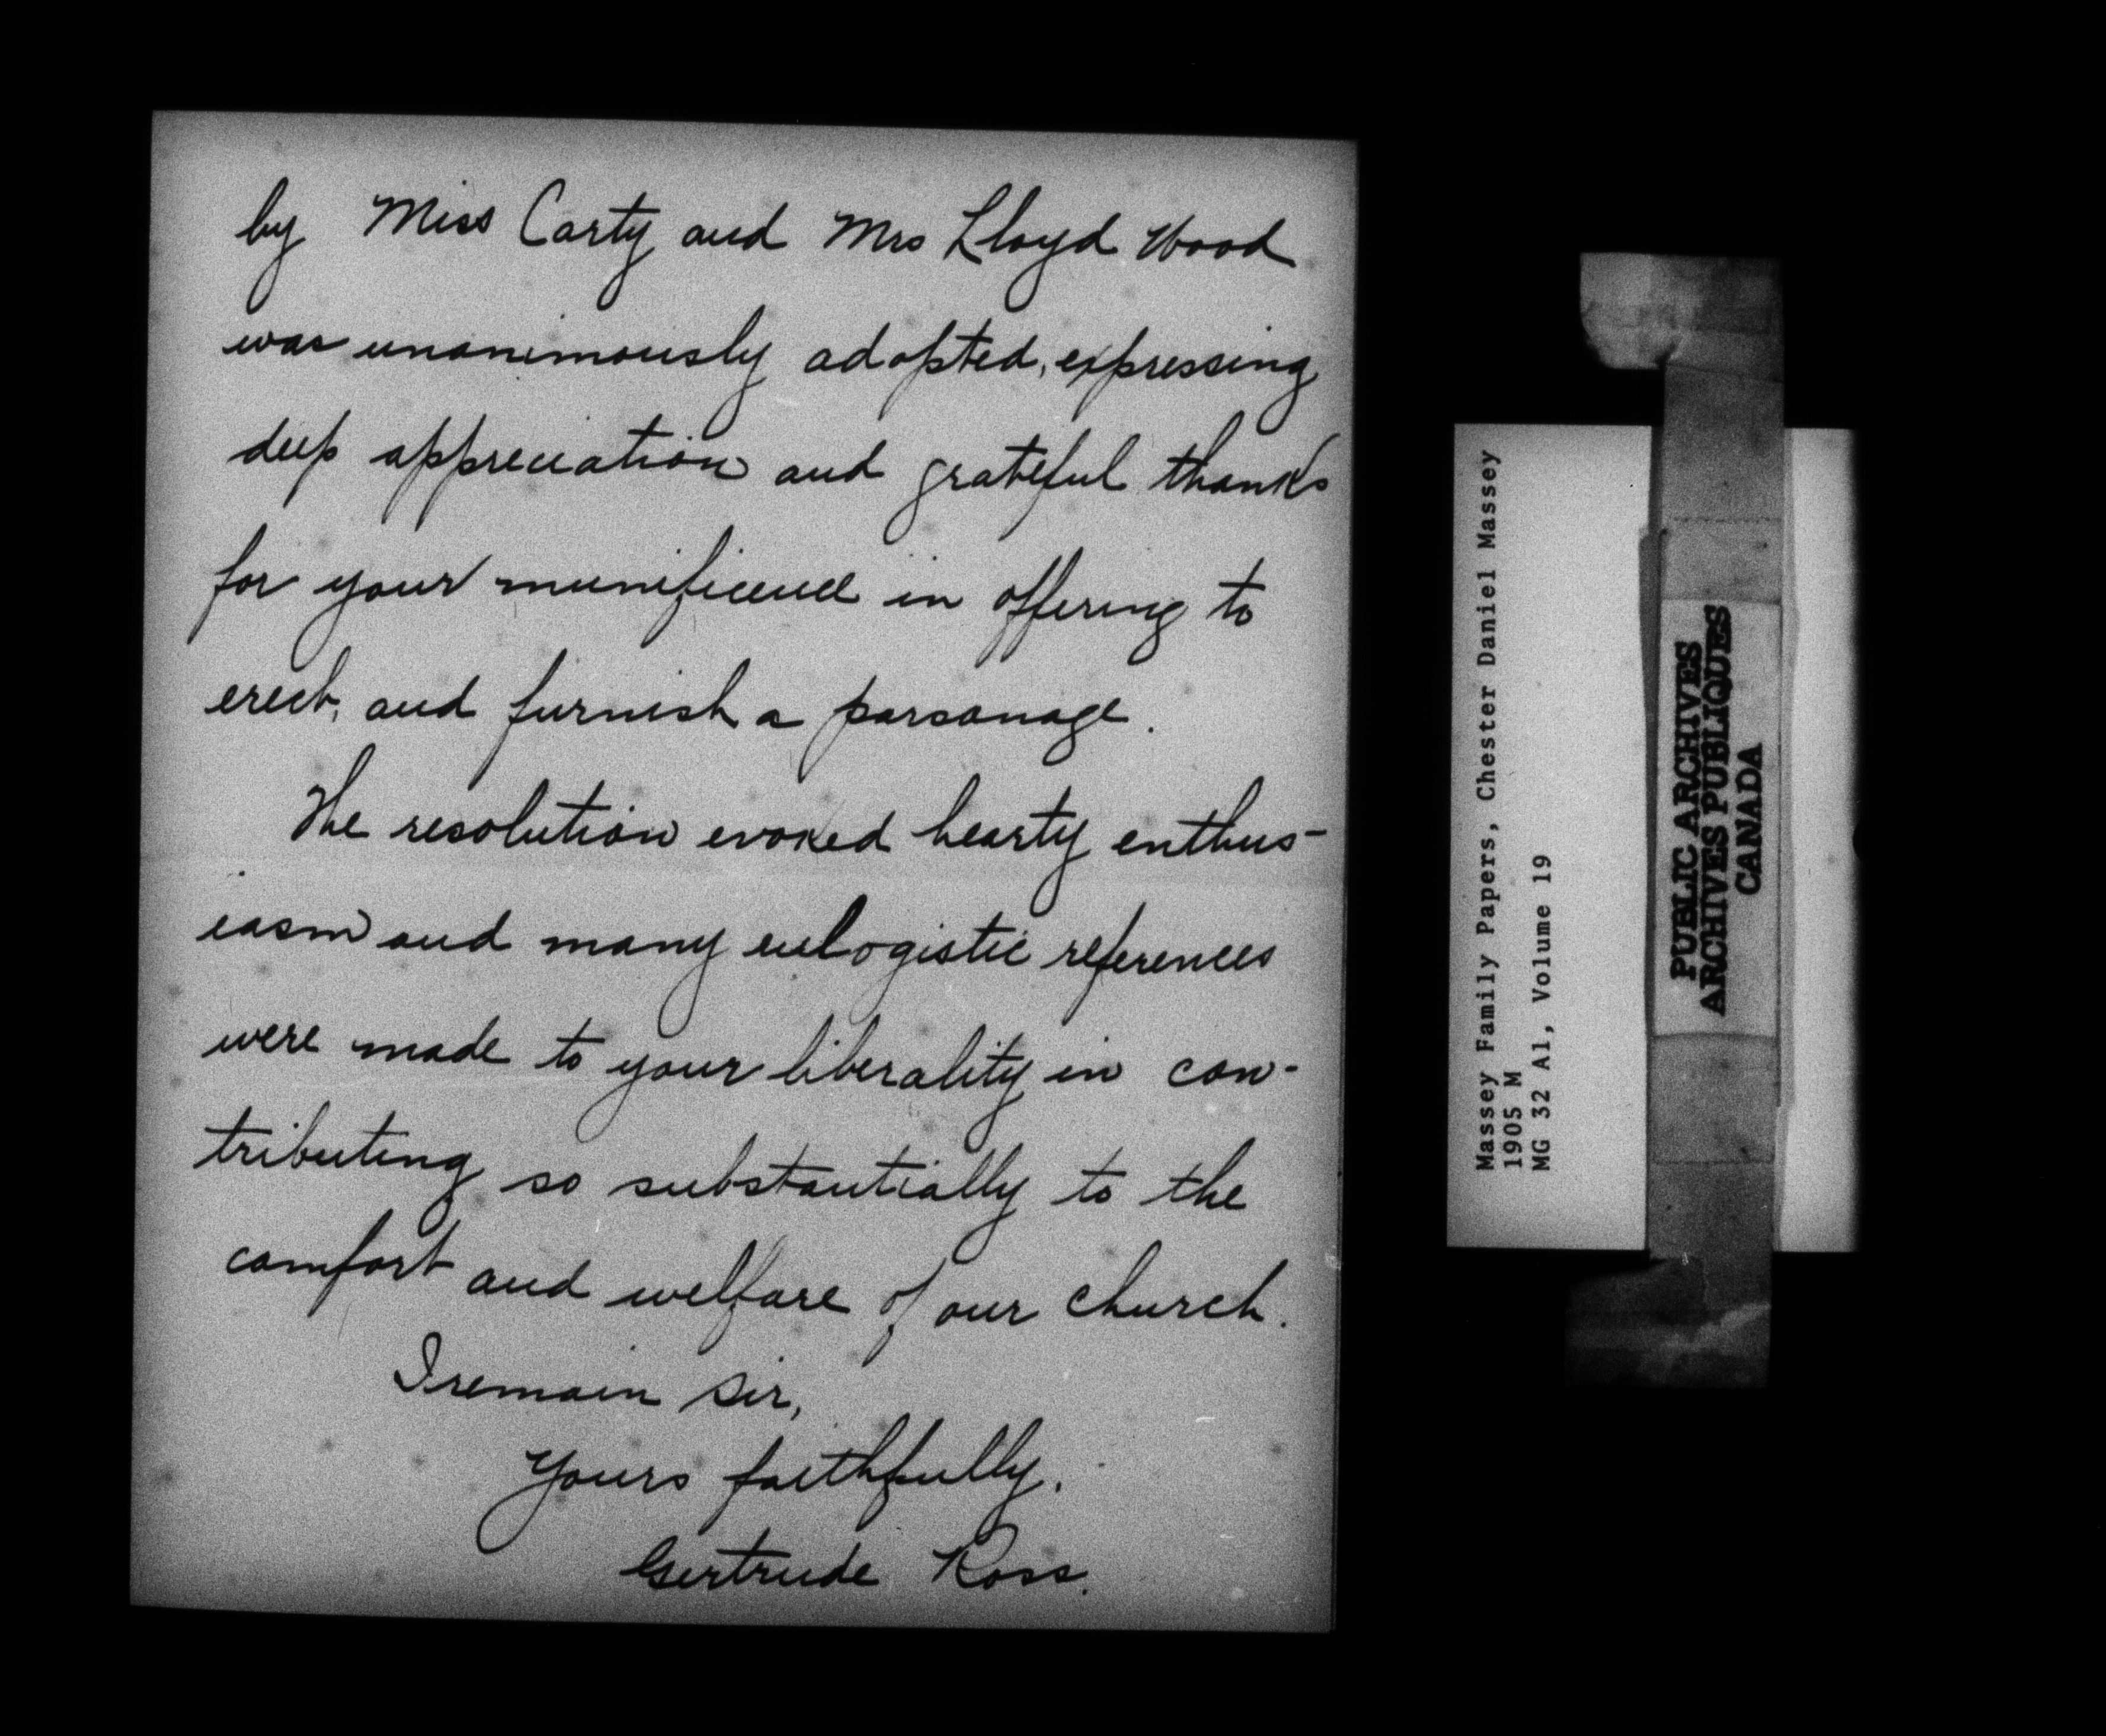 by Miss Carty and Mrs Lloyd Wood
was unanimously adopted, expressing
deep appreciation and grateful thanks
for your munificence in offering to
erect, and furnish a parsonage.
The resolution evoked hearty enthus-
iasm and many eulogistic references
were made to your liberality in con-
tributing so substantially to the
comfort and welfare of our church.
I remain Sir,
Yours faithfully.
Gertrude Ross.
Massey Family Papers, Chester Daniel Massey
1905 M
MG 32 A1, Volume 19
PUBLIC ARCHIVES
ARCHIVES PUBLIQUES
CANADA